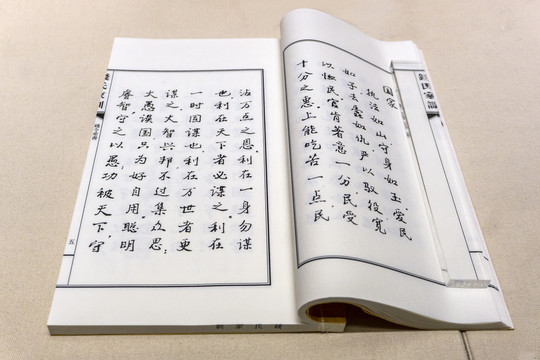 錢氏家訓
國家
執法如山，守身如玉，愛民
如子，去蠹如仇。嚴以馭役，寬
以恤民。官肯著意一分，民受
十分之惠。上能吃苦一点，民
沾万点之恩。利在一身勿謀
也，利在天下者必謀之。利在
一时固谋也，利在万世者更
谋之。大智兴邦，不过集众思；
大愚误国，只为好自用。聪明
睿智，守之以愚。功被天下，守
錢氏家訓
五